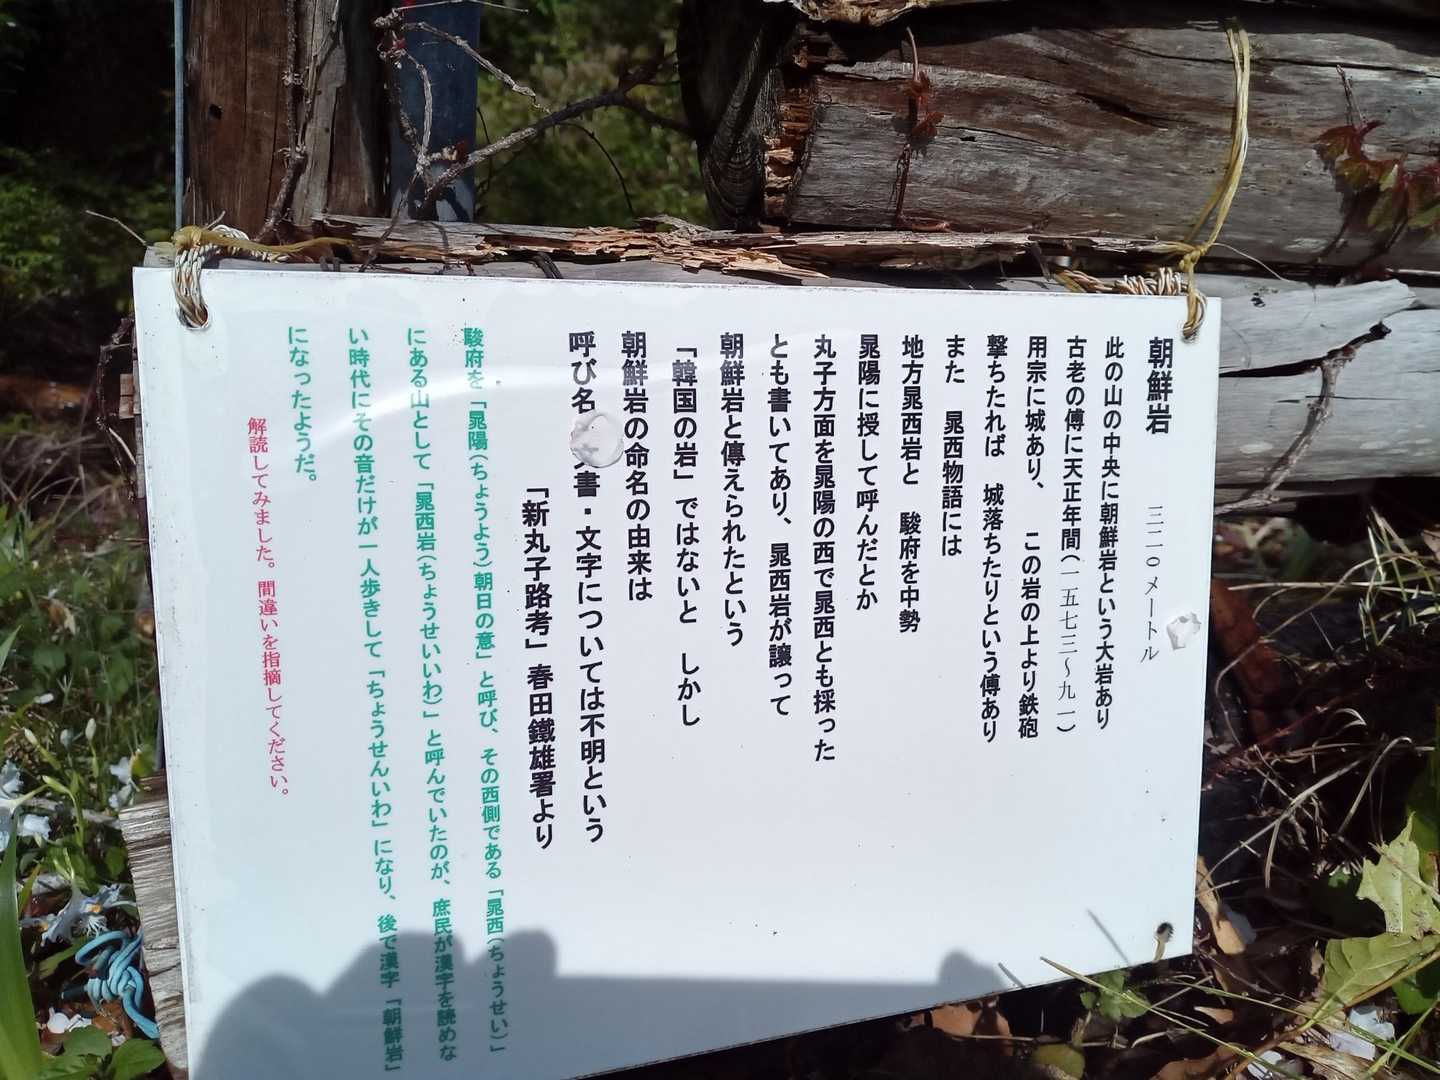 朝鮮岩　三二〇メートル
此の山の中央に朝鮮岩という大岩あり
古老の傳に天正年間(一五七三～九一)
用宗に城あり、　この岩の上より鉄砲
撃ちたれば　城落ちたりという傳あり
また　晁西物語には
地方晁西岩と　駿府を中勢
晁陽に授して呼んだとか
丸子方面を晁陽の西で晁西とも採った
とも書いてあり、晁西岩が譲って
朝鮮岩と傳えられたという
「韓国の岩」ではないと　しかし
朝鮮岩の命名の由来は
呼び名　書・文字については不明という
「新丸子路考」春田鐵雄署より
駿府を「晁陽(ちょうよう)朝日の意」と呼び、その西側である「晁西(ちょうせい)」
にある山として「晁西岩(ちょうせいいわ)」と呼んでいたのが、庶民が漢字を読めな
い時代にその音だけが一人歩きして「ちょうせんいわ」になり、後で漢字「朝鮮岩」
になったようだ。
解読してみました。間違いを指摘してください。